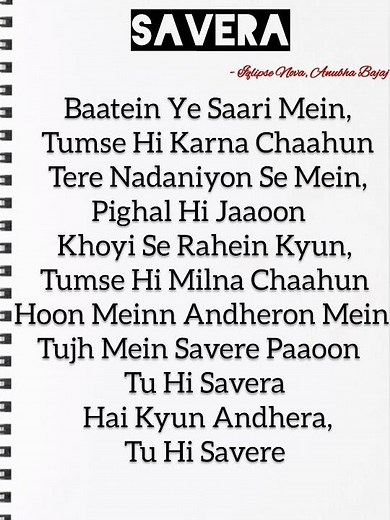 SAVERA
- Iqlipse Nova, Anubha Bajaj
Baatein Ye Saari Mein,
Tumse Hi Karna Chaahun
Tere Nadaniyon Se Mein,
Pighal Hi Jaaoon
Khoyi Se Rahein Kyun,
Tumse Hi Milna Chaahun
Hoon Meinn Andheron Mein
Tujh Mein Savere Paaoon
Tu Hi Savera
Hai Kyun Andhera,
Tu Hi Savere